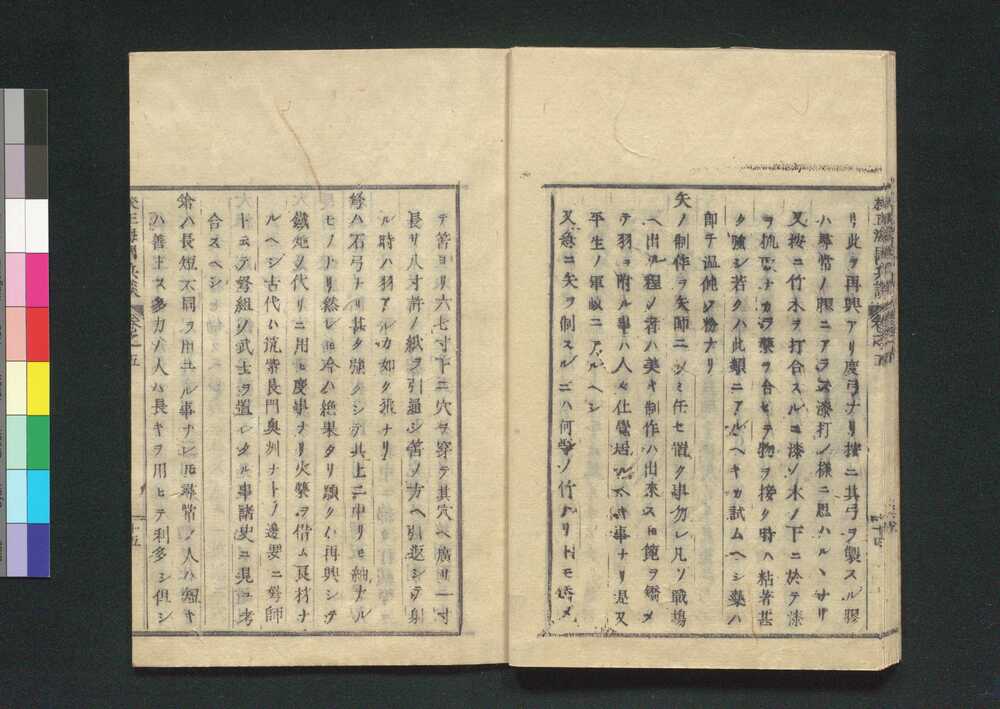 リ此ヲ再興アリ度弓ナリ按ニ其弓ヲ製スル膠
ハ尋常ノ膠ニアラス漆打ノ様ニ思ハルヽナリ
又按ニ竹木ヲ打合スルニ漆ソ木ノ下ニ於テ漆
ヲ ナカラ藥ヲ合セテ物ヲ接ク時ハ粘著甚
タ強シ若クハ此類ニアルヘキカ試ムヘシ藥ハ
即チ温飩ノ粉ナリ
矢ノ制作ヲ矢師ニノミ任セ置ク事勿レ凡ソ戰場
ヘ出ル程ノ者ハ美キ制作ハ出來ス トモ箆ヲ矯メ
テ羽ヲ附ル事ハ人々仕覺居ルヘキ事ナリ是又
平生ノ軍 ニアルヘシ
又急ニ矢ヲ制スルニハ何等ノ竹ナリトモ矯メ
テ筈ヨリ六七寸下ニ穴ヲ穿テ其穴ヘ廣サ一寸
長サ八寸許ノ紙ヲ引通シ筈ノ方ヘ引返シテ射
ル時ハ羽アルカ如ク飛ナリ
弩ハ石弓ナリ甚タ強クシテ其上ニ中リモ細ナル
モノナリ然レトモ今ハ絶果タリ願クハ再興シテ
鐵炮ノ代リニ用ヒ度事ナリ火藥ヲ借ム良材ナ
ルヘシ古代ハ筑紫長門奥州ナトノ邊要ニ弩師
トテ弩組ノ武士ヲ置レタル事諸史ニ見ユ考
合スヘシ
鎗ハ長短不同ヲ用ユル事ナレトモ尋常ノ人ハ短キ
ハ善キス多力ノ人ハ長キヲ用ヒテ利多シ但シ